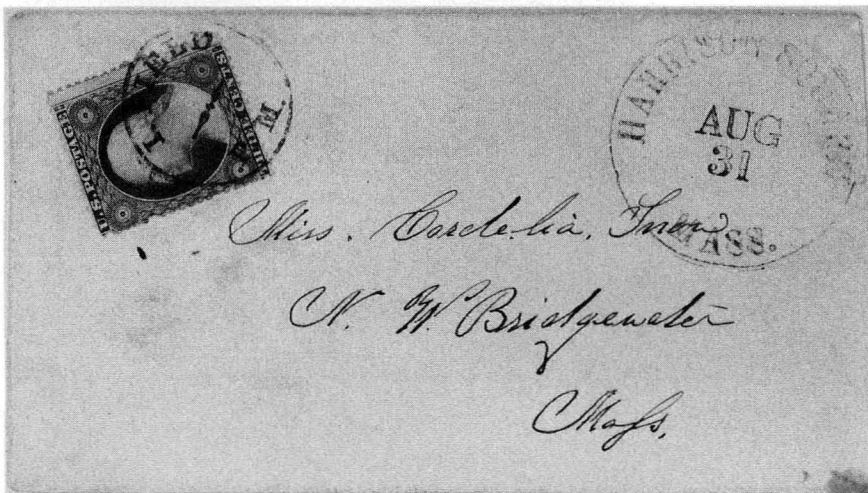 U.S. POSTAGE
THREE CENTS
IELD
M.
HARRISON SQUARE
AUG
31
MASS.
Miss. Cordelia. Snow
N. W. Bridgewater
Mass.